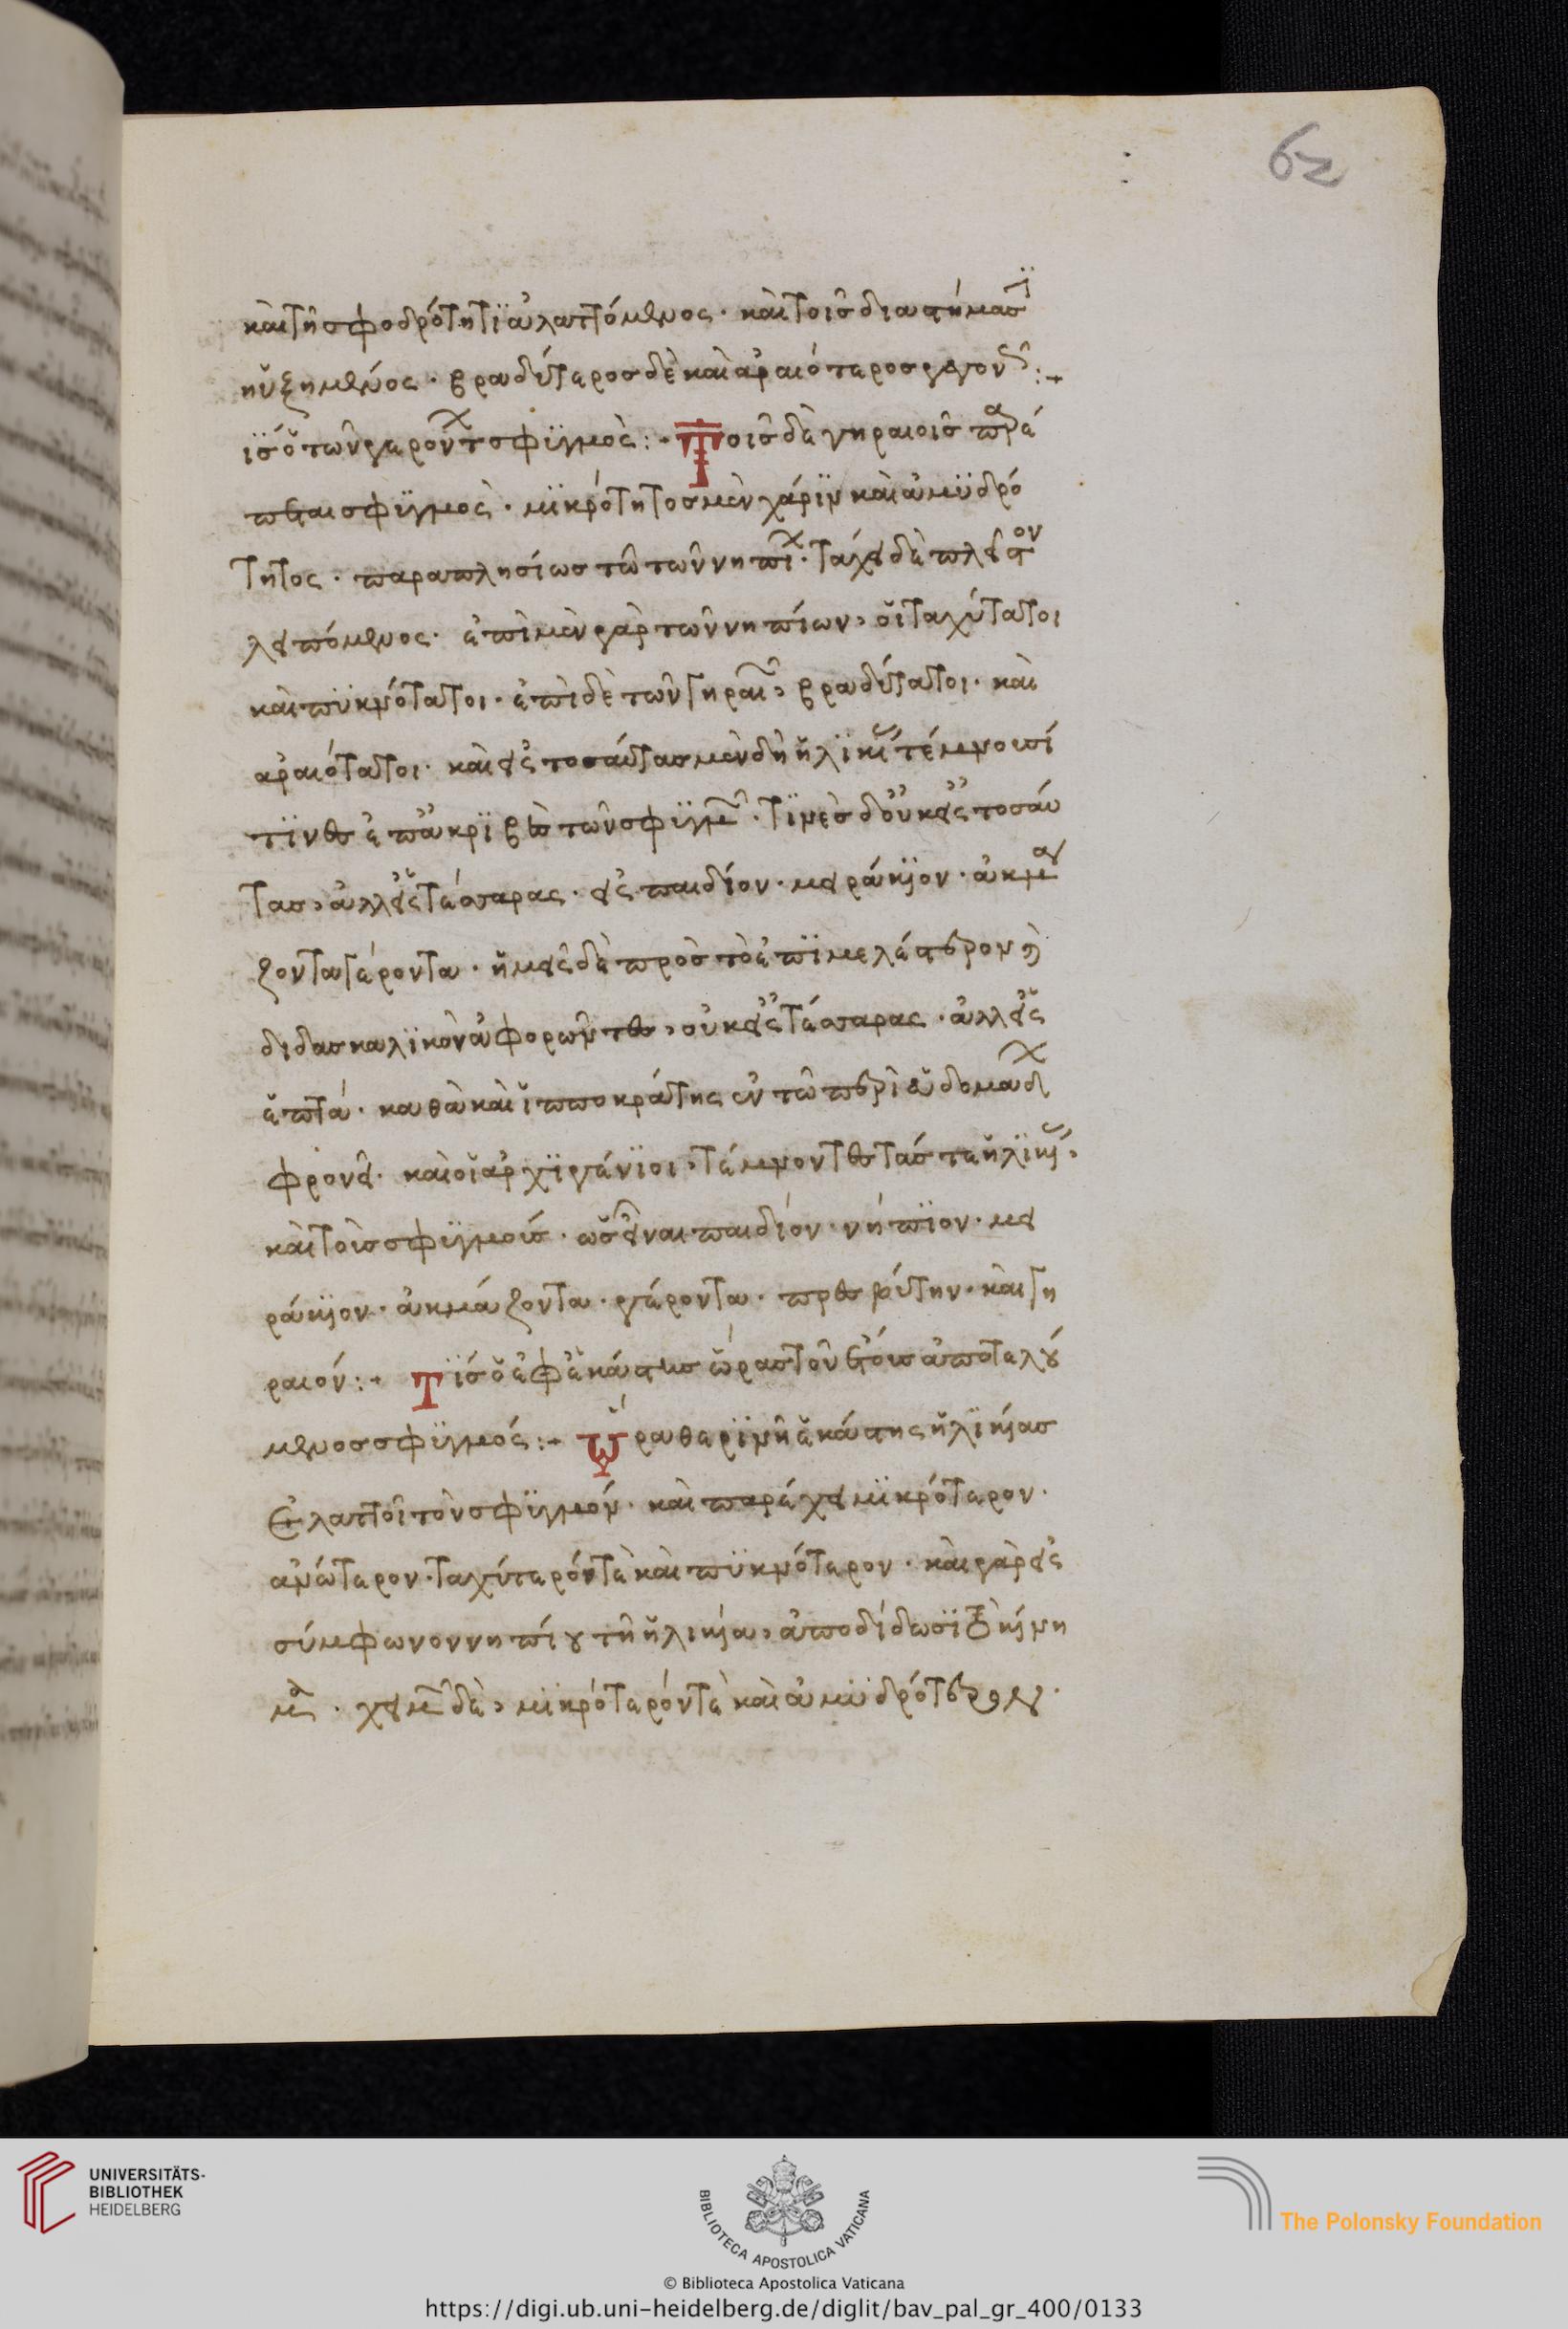 62
καὶ τῆ σφοδρότητϊ ἐλαττόμενος · καὶ τοῖς διαστήμασϊ
ηὐξημένος · βραδύτερος δὲ καὶ ἀραιότερος γέγονε :
τίς ὁ τῶν γερόντων σφϋγμὸς : Τοῖς δὲ γηραιοῖς
σφϋγμὸς · μϊκρότητος μὲν χάρϊν καὶ ἀμϋδρό
τητος · παραπλησίως τῶ τῶν νηπίων · τάχει δὲ πλεῖστον
λειπόμενος · ἐπὶ μὲν γὰρ τῶν νηπίων, οἱ ταχύτατοι
καὶ πϋκνότατοι · ἐπὶ δὲ τῶν γηραιῶν, βραδύτατοι · καὶ
ἀραιότατοι · καὶ εἰς τοσαύτας μὲν δὴ ἡλϊκίας τέμνουσί
τϊνες ἐπ' ἀκρϊβὲς τῶν σφϋγμῶν · τϊνὲς δ' οὐκ εἰς τοσαύ
τας, ἀλλ' εἰς τέσσαρας · εἰς παιδίον · μειράκϊον · ἀκμά
ζοντα γέροντα · ἡμεῖς δὲ πρὸς τὸ ἐπϊμελέστερον καὶ
διδασκαλϊκὸν ἀφορῶντες, οὐκ εἰς τέσσαρας · ἀλλ' εἰς
ἑπτά · καθὰ καὶ ἱπποκράτης ἐν τῶ περὶ ἑβδομάδων
φρονεῖ · καὶ οἱ ἀρχϊγένϊοι, τέμνοντες τάς τε ἡλϊκίας,
καὶ τοὺς σφϋγμούς · ὡς εἶναι παιδίον · νήπϊον · μει
ράκϊον · ἀκμάζοντα · γέροντα · πρεσβύτην · καὶ γη
ραιόν : Τϊς ὁ ἐφ' ἑκάστης ὥρας τοῦ ἔτους ἀποτελού
μενος σφϋγμός : Ὥρα θερϊνὴ ἑκάστης ἡλϊκίας
ἐλαττοῖ τὸν σφϋγμόν · καὶ παρέχει μϊκρότερον ·
ἀμότερον · ταχύτερόν τε καὶ πϋκνότερον · καὶ γὰρ εἰς
σύμφωνον νηπίου τῆ ἡλικία, ἀποδίδωσϊ τὸ κίνη
μα · χειμῶν δὲ, μϊκρότερόν τε καὶ ἀμϋδρότερον ·
UNIVERSITÄTS-
BIBLIOTHEK
HEIDELBERG
BIBLIOTECA APOSTOLICA VATICANA
The Polonsky Foundation
© Biblioteca Apostolica Vaticana
https://digi.ub.uni-heidelberg.de/diglit/bav_pal_gr_400/0133